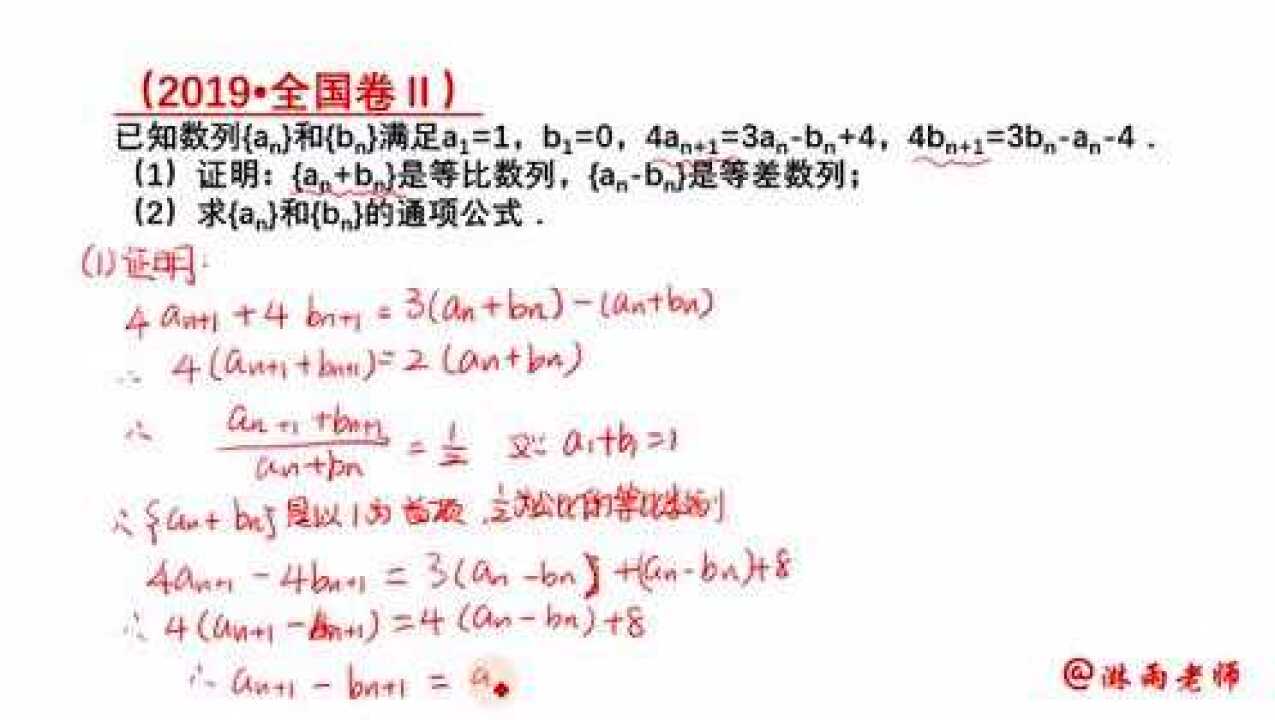 （2019•全国卷Ⅱ）
已知数列{aₙ}和{bₙ}满足a₁=1，b₁=0，4aₙ₊₁=3aₙ-bₙ+4，4bₙ₊₁=3bₙ-aₙ-4．
（1）证明：{aₙ+bₙ}是等比数列，{aₙ-bₙ}是等差数列；
（2）求{aₙ}和{bₙ}的通项公式．
(1)证明:
4aₙ₊₁+4bₙ₊₁=3(aₙ+bₙ)-(aₙ+bₙ)
∴ 4(aₙ₊₁+bₙ₊₁)=2(aₙ+bₙ)
∴ (aₙ₊₁+bₙ₊₁)/(aₙ+bₙ)=1/2 又∵ a₁+b₁=1
∴{aₙ+bₙ}是以1为首项,1/2为公比的等比数列
4aₙ₊₁-4bₙ₊₁=3(aₙ-bₙ)+(aₙ-bₙ)+8
∴ 4(aₙ₊₁-bₙ₊₁)=4(aₙ-bₙ)+8
∴ aₙ₊₁-bₙ₊₁=a
@淋雨老师